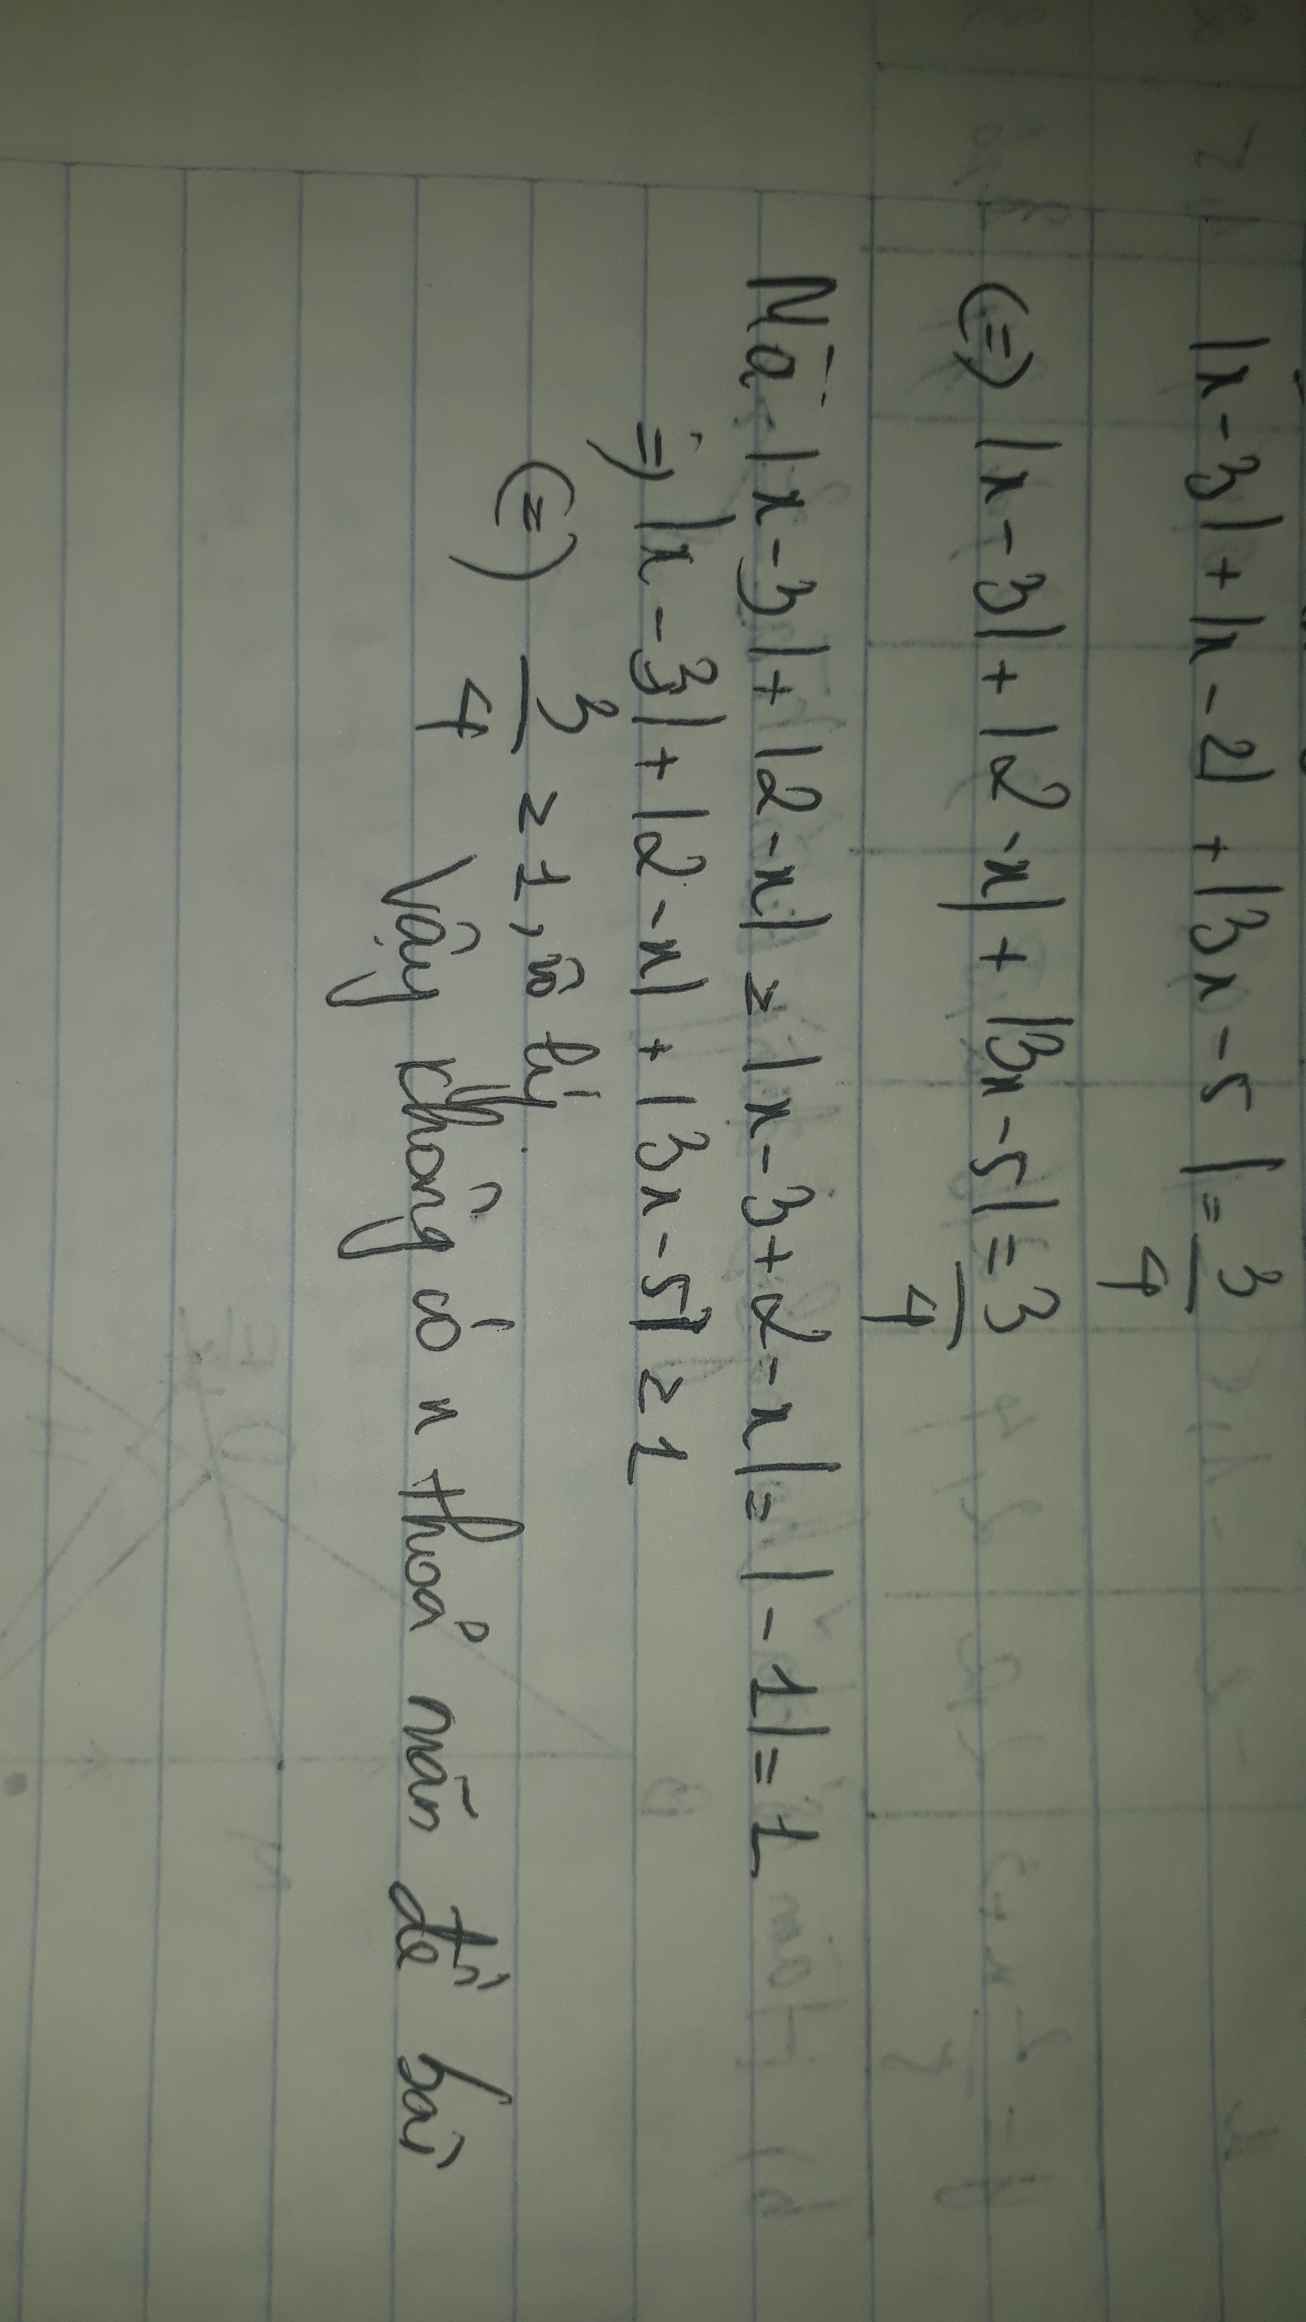 |x-3| + |x-2| + |3x-5| = 3/4
(=) |x-3| + |2-x| + |3x-5| = 3/4
Mà |x-3| + |2-x| ≥ |x-3+2-x| = |-1| = 1
=) |x-3| + |2-x| + |3x-5| ≥ 1
(=) 3/4 ≥ 1, vô lý
Vậy không có x thoả mãn đề bài